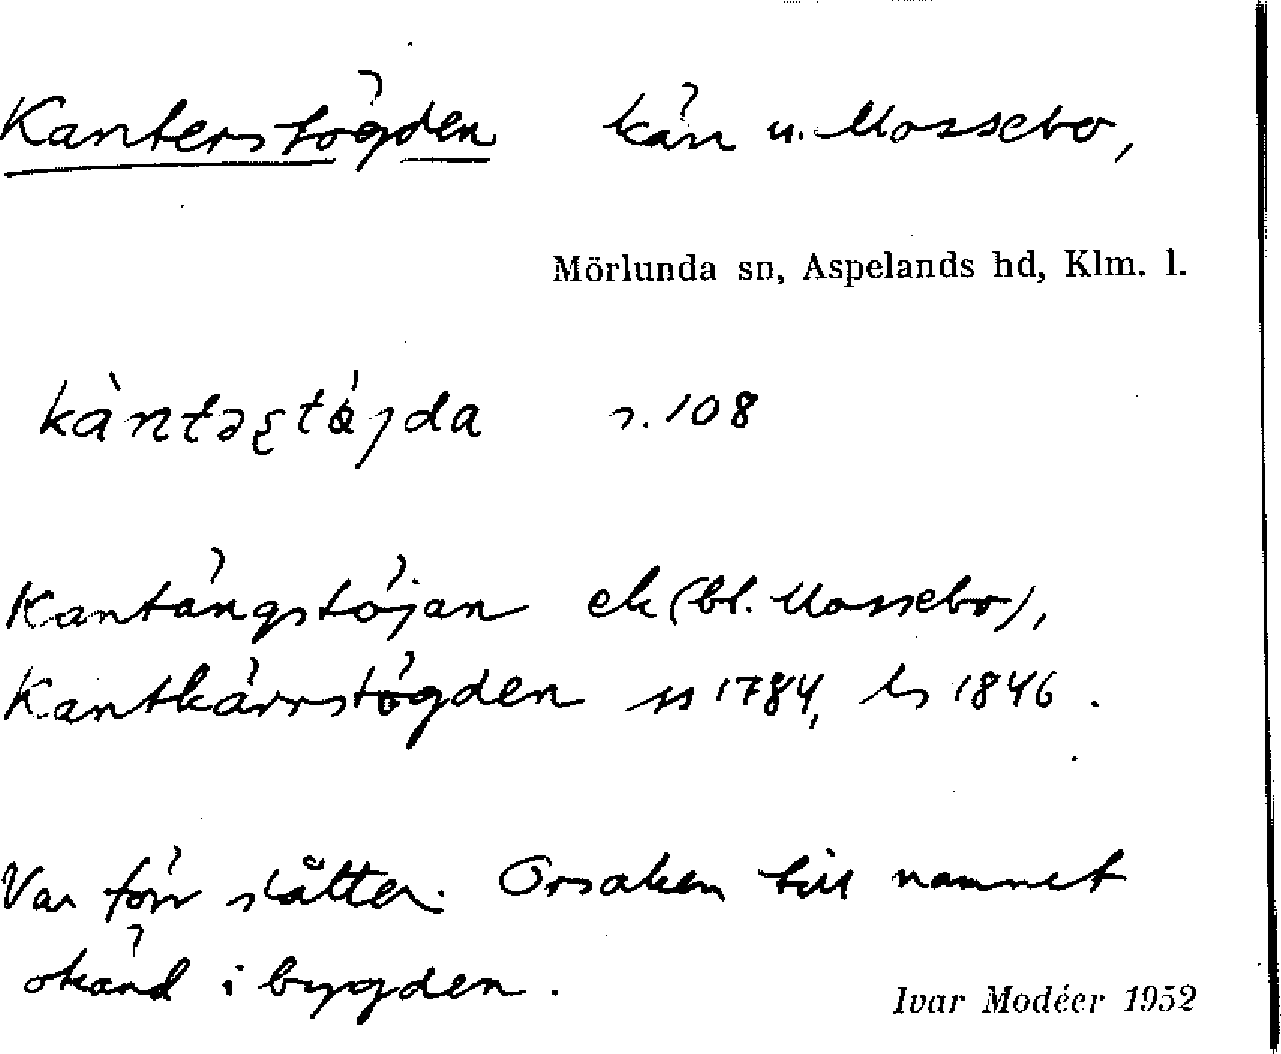 Kanterstögden kärr u. Mossebo,
Mörlunda sn, Aspelands hd, Klm. l.
s. 108
Kantängstöjan ek (bl. Mossebo),
Kantkärrstögden ss 1784, ls 1846.
Var förr slåtter. Orsaken till namnet
okänd i bygden.
Ivar Modéer 1952